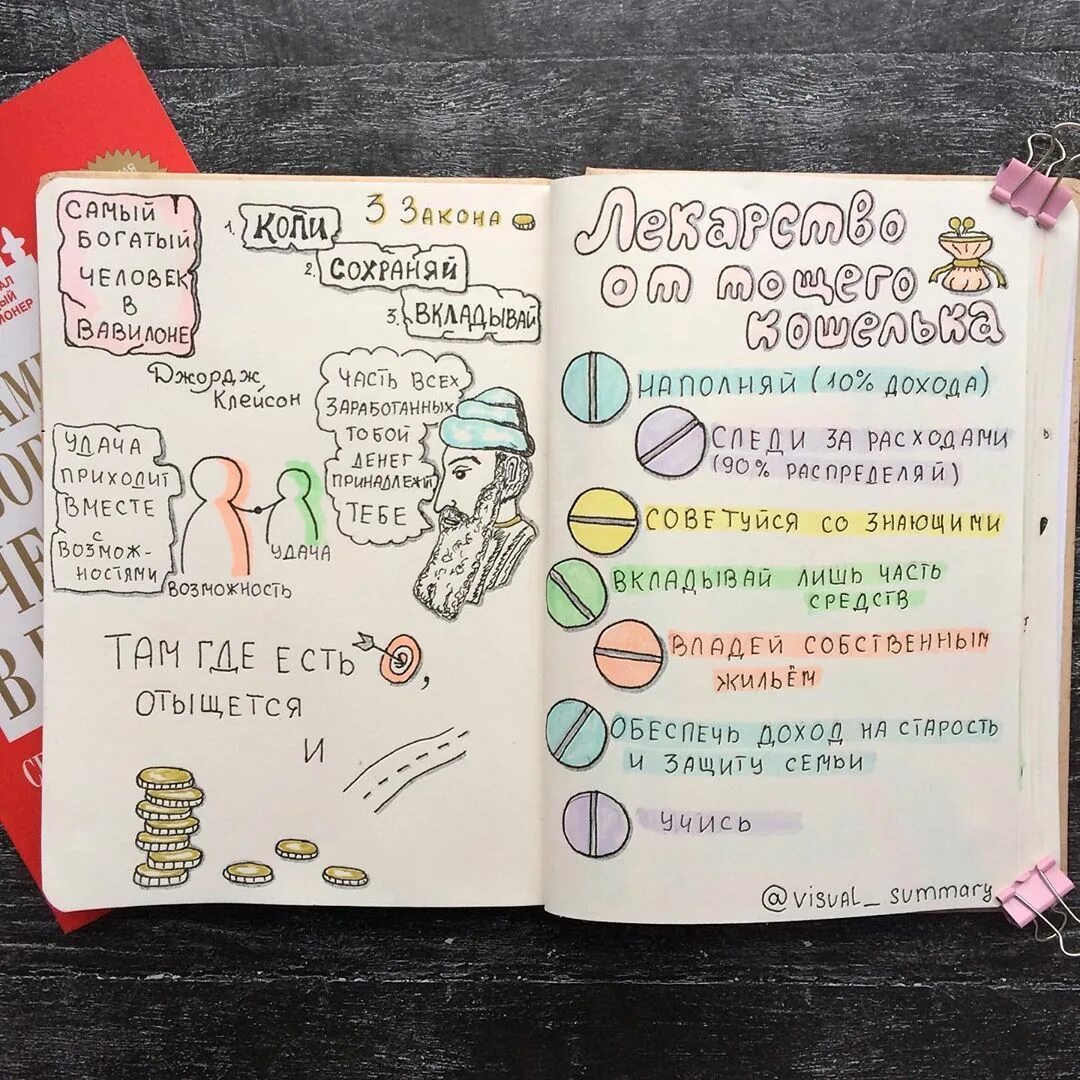 САМЫЙ
БОГАТЫЙ
ЧЕЛОВЕК
В
ВАВИЛОНЕ
Джордж
Клейсон
3 ЗАКОНА
1. КОПИ
2. СОХРАНЯЙ
3. ВКЛАДЫВАЙ
ЧАСТЬ ВСЕХ
ЗАРАБОТАННЫХ
ТОБОЙ
ДЕНЕГ
ПРИНАДЛЕЖИТ
ТЕБЕ
УДАЧА
ПРИХОДИТ
ВМЕСТЕ
С
ВОЗМОЖ-
НОСТЯМИ
УДАЧА
ВОЗМОЖНОСТЬ
ТАМ ГДЕ ЕСТЬ ,
ОТЫЩЕТСЯ
И
Лекарство
от тощего
кошелька
НАПОЛНЯЙ (10% ДОХОДА)
СЛЕДИ ЗА РАСХОДАМИ
(90% РАСПРЕДЕЛЯЙ)
СОВЕТУЙСЯ СО ЗНАЮЩИМИ
ВКЛАДЫВАЙ ЛИШЬ ЧАСТЬ
СРЕДСТВ
ВЛАДЕЙ СОБСТВЕННЫМ
ЖИЛЬЁМ
ОБЕСПЕЧЬ ДОХОД НА СТАРОСТЬ
И ЗАЩИТУ СЕМЬИ
УЧИСЬ
@visual_summary